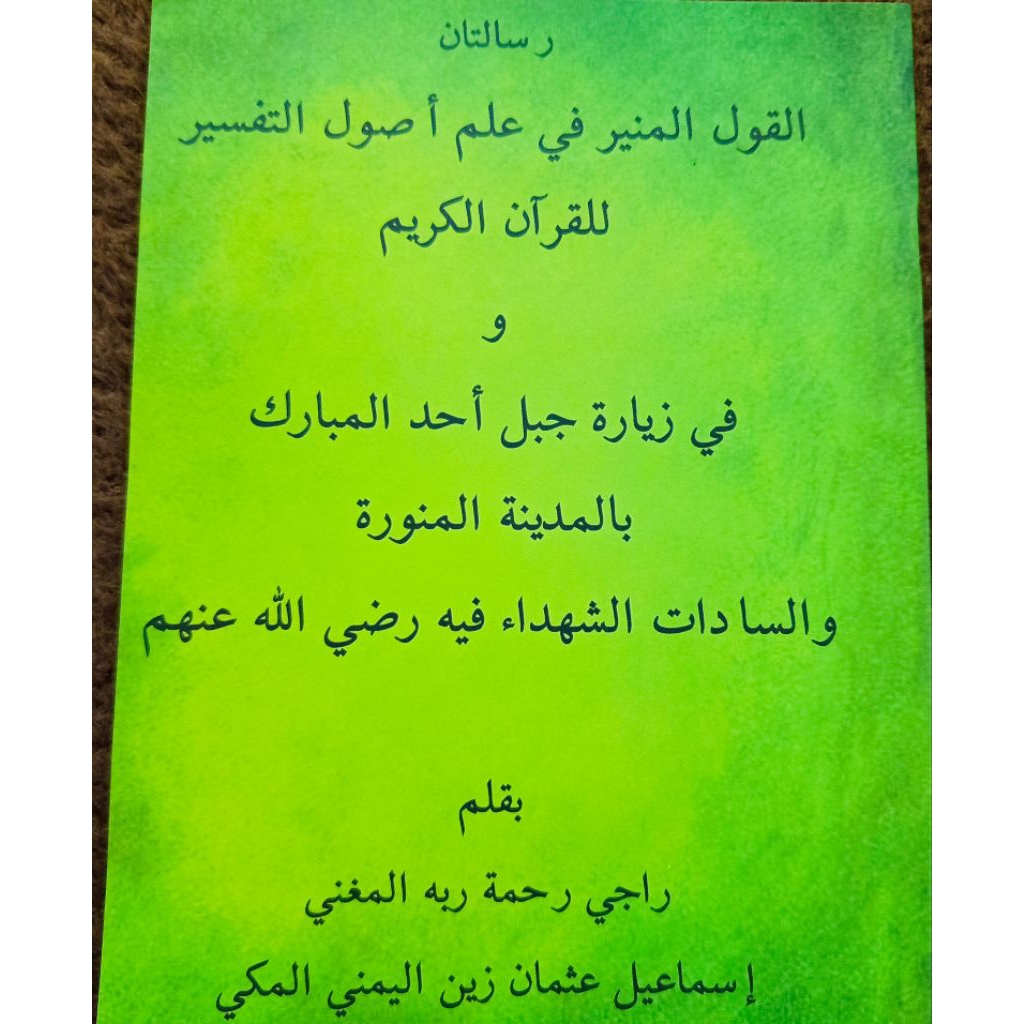 رسالتان
القول المنير في علم أصول التفسير
للقرآن الكريم
و
في زيارة جبل أحد المبارك
بالمدينة المنورة
والسادات الشهداء فيه رضي الله عنهم
بقلم
راجي رحمة ربه المغني
إسماعيل عثمان زين اليمني المكي